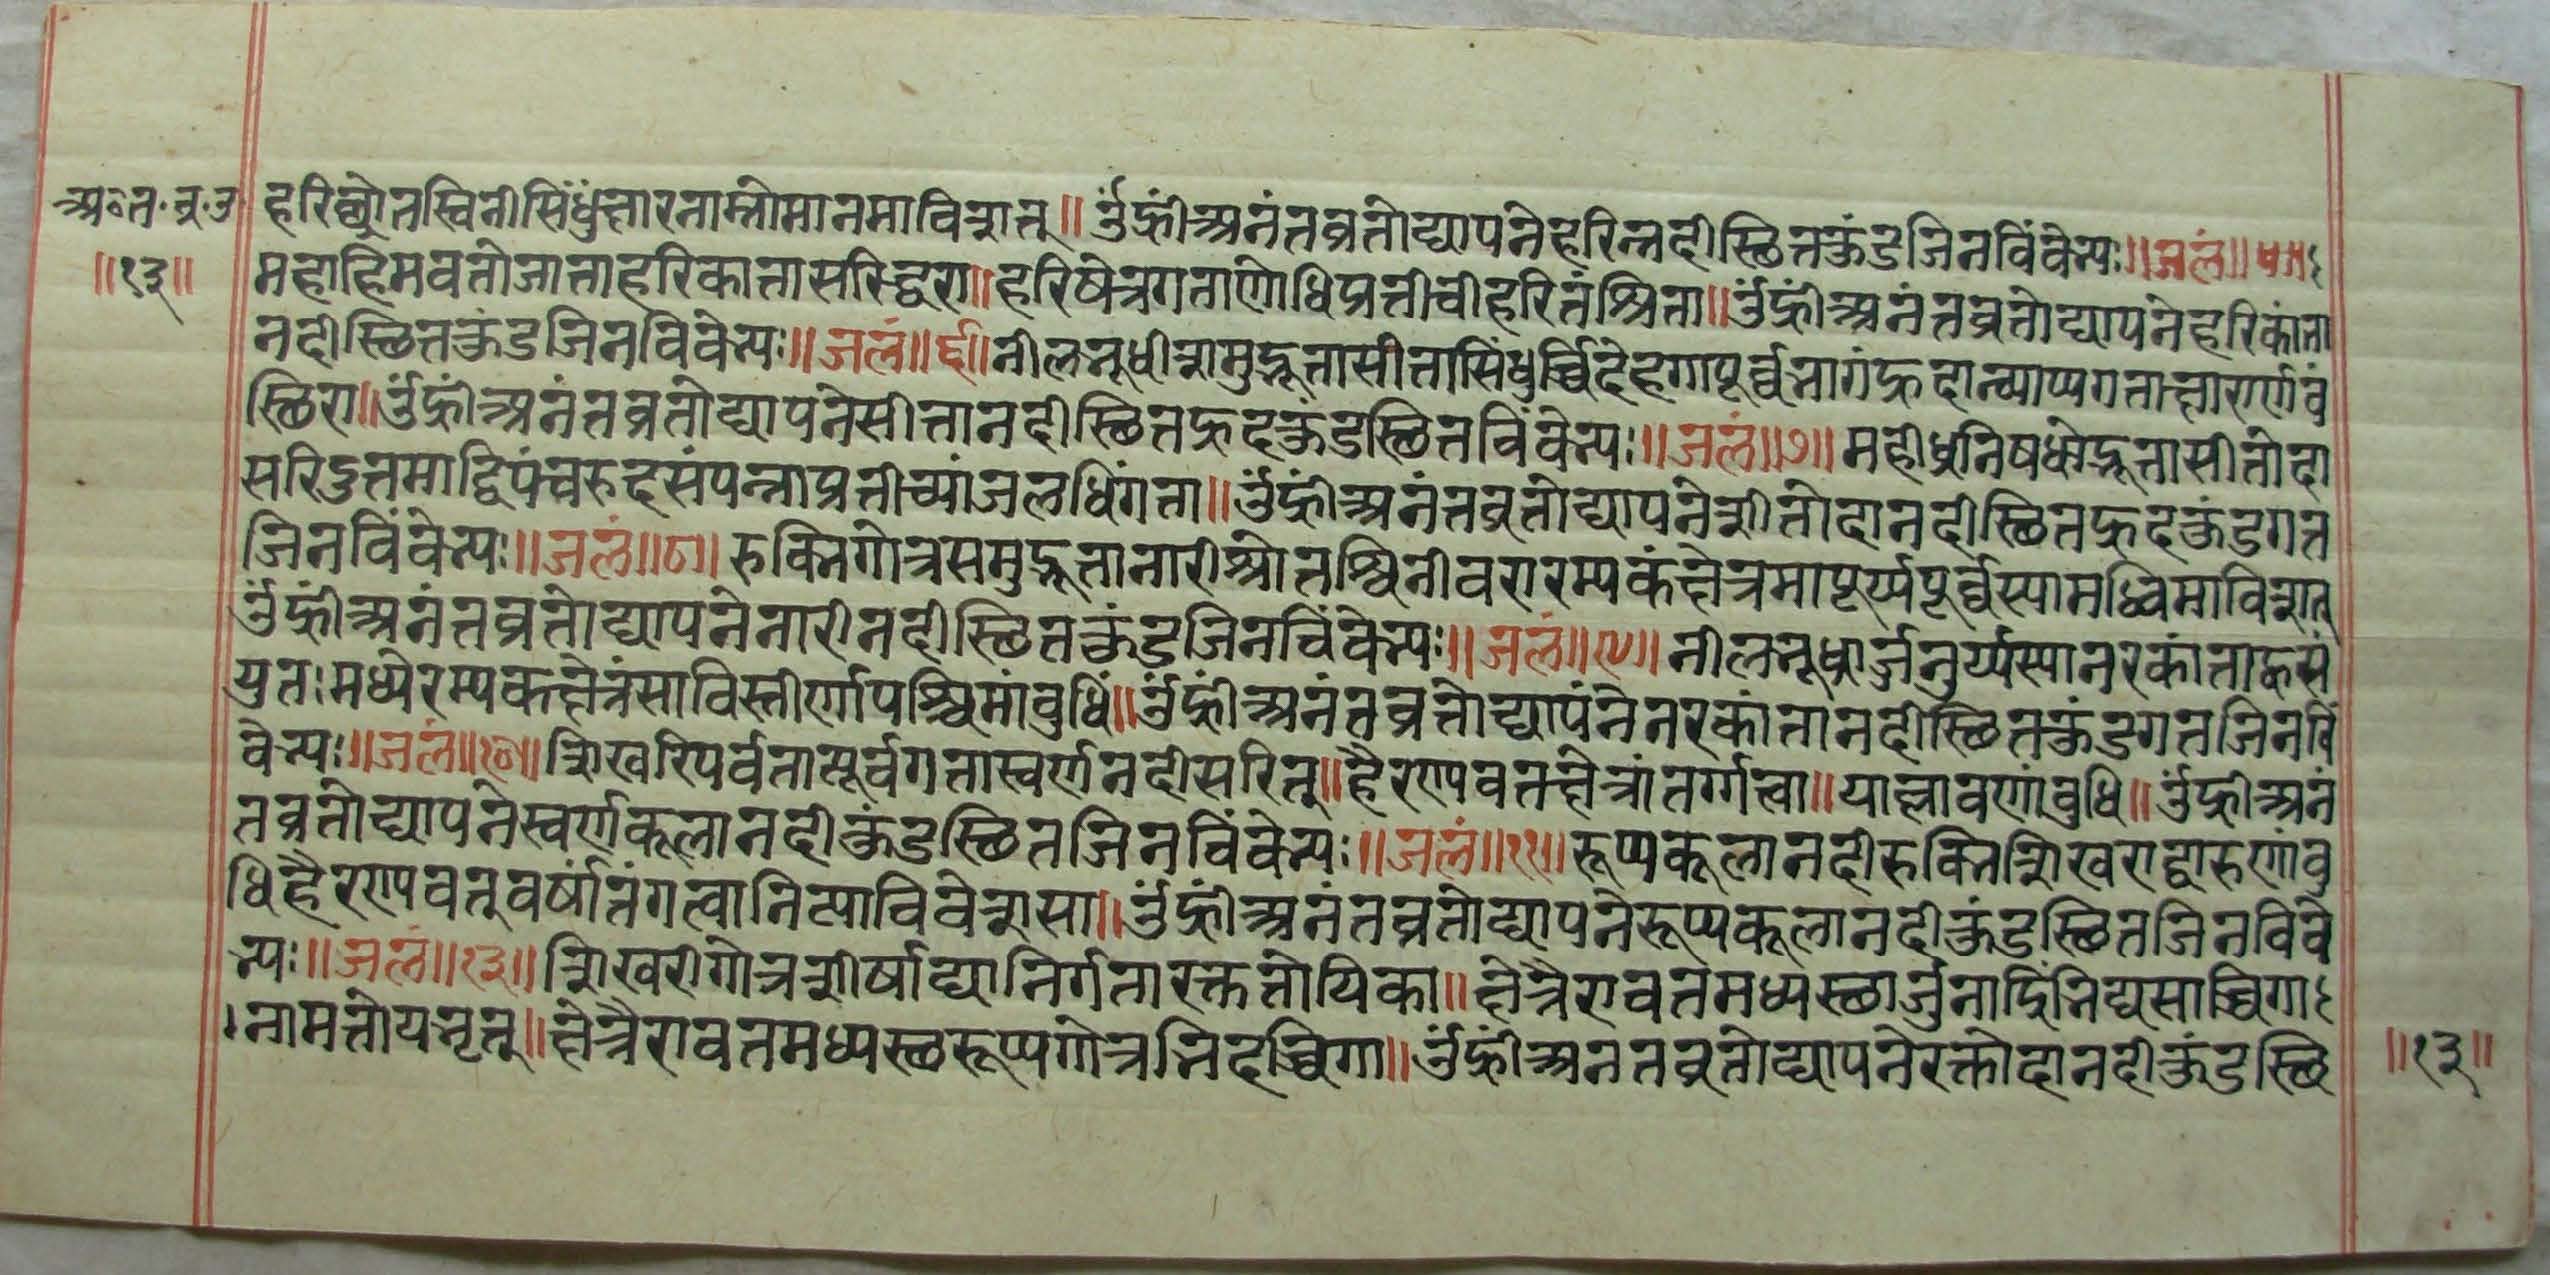 अ०त.व्र.उ
॥१३॥
हरिछ्रोतस्विनीसिंधुंत्तारनाम्नीमानमाविशत् ॥ ॐ ह्रीं अनंतव्रतोद्यापने हरिन्नदीस्थितकुंडजिनविंवेभ्यः ॥ जलं ॥ ५ ॥
महाहिमवतो जाता हरिकाता सरिद्वरा ॥ हरिषेत्रगताणोधिप्रतीचीहरितंश्रिता ॥ ॐ ह्रीं अनंतव्रतोद्यापने हरिकांता
नदीस्थितकुंडजिनविवेभ्यः ॥ जलं ॥ ६ ॥ नीलभूधीशमुद्भूता सीतासिंधुर्विदेहगा पूर्व्वभागं ह्रदान्व्याप्य गता क्षारार्णवं
स्थिरा ॥ ॐ ह्रीं अनंतव्रतोद्यापने सीतानदीस्थितह्रदकुंडस्थितविंवेभ्यः ॥ जलं ॥ ७ ॥ महीध्रनिषधोद्भूता सीतोदा
सरिदुत्तमा द्विपंचरुदसंपन्ना प्रतीच्यां जलधिंगता ॥ ॐ ह्रीं अनंतव्रतोद्यापने शीतोदानदीस्थितह्रदकुंडगत
जिनविंवेभ्यः ॥ जलं ॥ ८ ॥ रुक्मिगोत्रसमुद्भूता नारीश्रोतश्विनीवरा रम्यकं क्षेत्रमापूर्य्य पूर्व्वस्यामब्धिमाविशत्
ॐ ह्रीं अनंतव्रतोद्यापने नारीनदीस्थितकुंडजिनविंवेभ्यः ॥ जलं ॥ ९ ॥ नीलभूध्रार्जनुर्य्यस्या नरकांताह्रसं
युतः मध्ये रम्यकक्षेत्रं सा विस्तीर्णा पश्चिमांवुधिं ॥ ॐ ह्रीं अनंतव्रतोद्यापंने नरकांतानदीस्थितकुंडगतजिनविं
वेभ्यः ॥ जलं ॥ १० ॥ शिखरिपर्वतात्पूर्वगता स्वर्णनदीसरित् ॥ हैरण्यवतक्षेत्रांतर्ग्गत्वा ॥ या क्षावणांवुधि ॥ ॐ ह्रीं अनं
तव्रतोद्यापने स्वर्णकूलानदीकुंडस्थितजिनविंवेभ्यः ॥ जलं ॥ ११ ॥ रूप्यकूलानदी रुक्मिशिखराद्वारुणांवु
धि हैरण्यवत्वर्षांतं गत्वा नित्या विवेश सा ॥ ॐ ह्रीं अनंतव्रतोद्यापने रूप्यकूलानदीकुंडस्थितजिनविवे
भ्यः ॥ जलं ॥ १२ ॥ शिखरीगोत्रशीर्षाद्या निर्गता रक्ततोयिका ॥ क्षेत्रैरावतमध्यस्थार्जुनाद्रिंभिद्य साब्धिगा
नामतोयभृत् ॥ क्षेत्रैरावतमध्यस्थरूप्यगोत्रभिदब्धिगा ॥ ॐ ह्रीं अनतव्रतोद्यापने रक्तोदानदीकुंडस्थि
॥१३॥